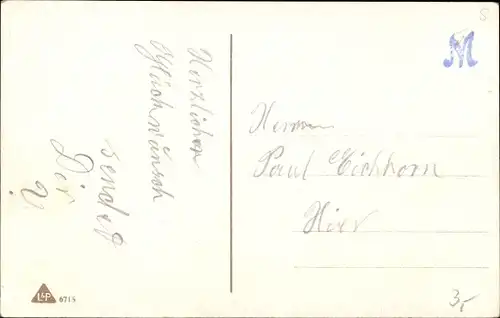 Herzlichen
Glückwünsch
sendet
Dir
V.
Herrn
Paul Eichhorn
Hier
M
3,-
L&P 6715
S